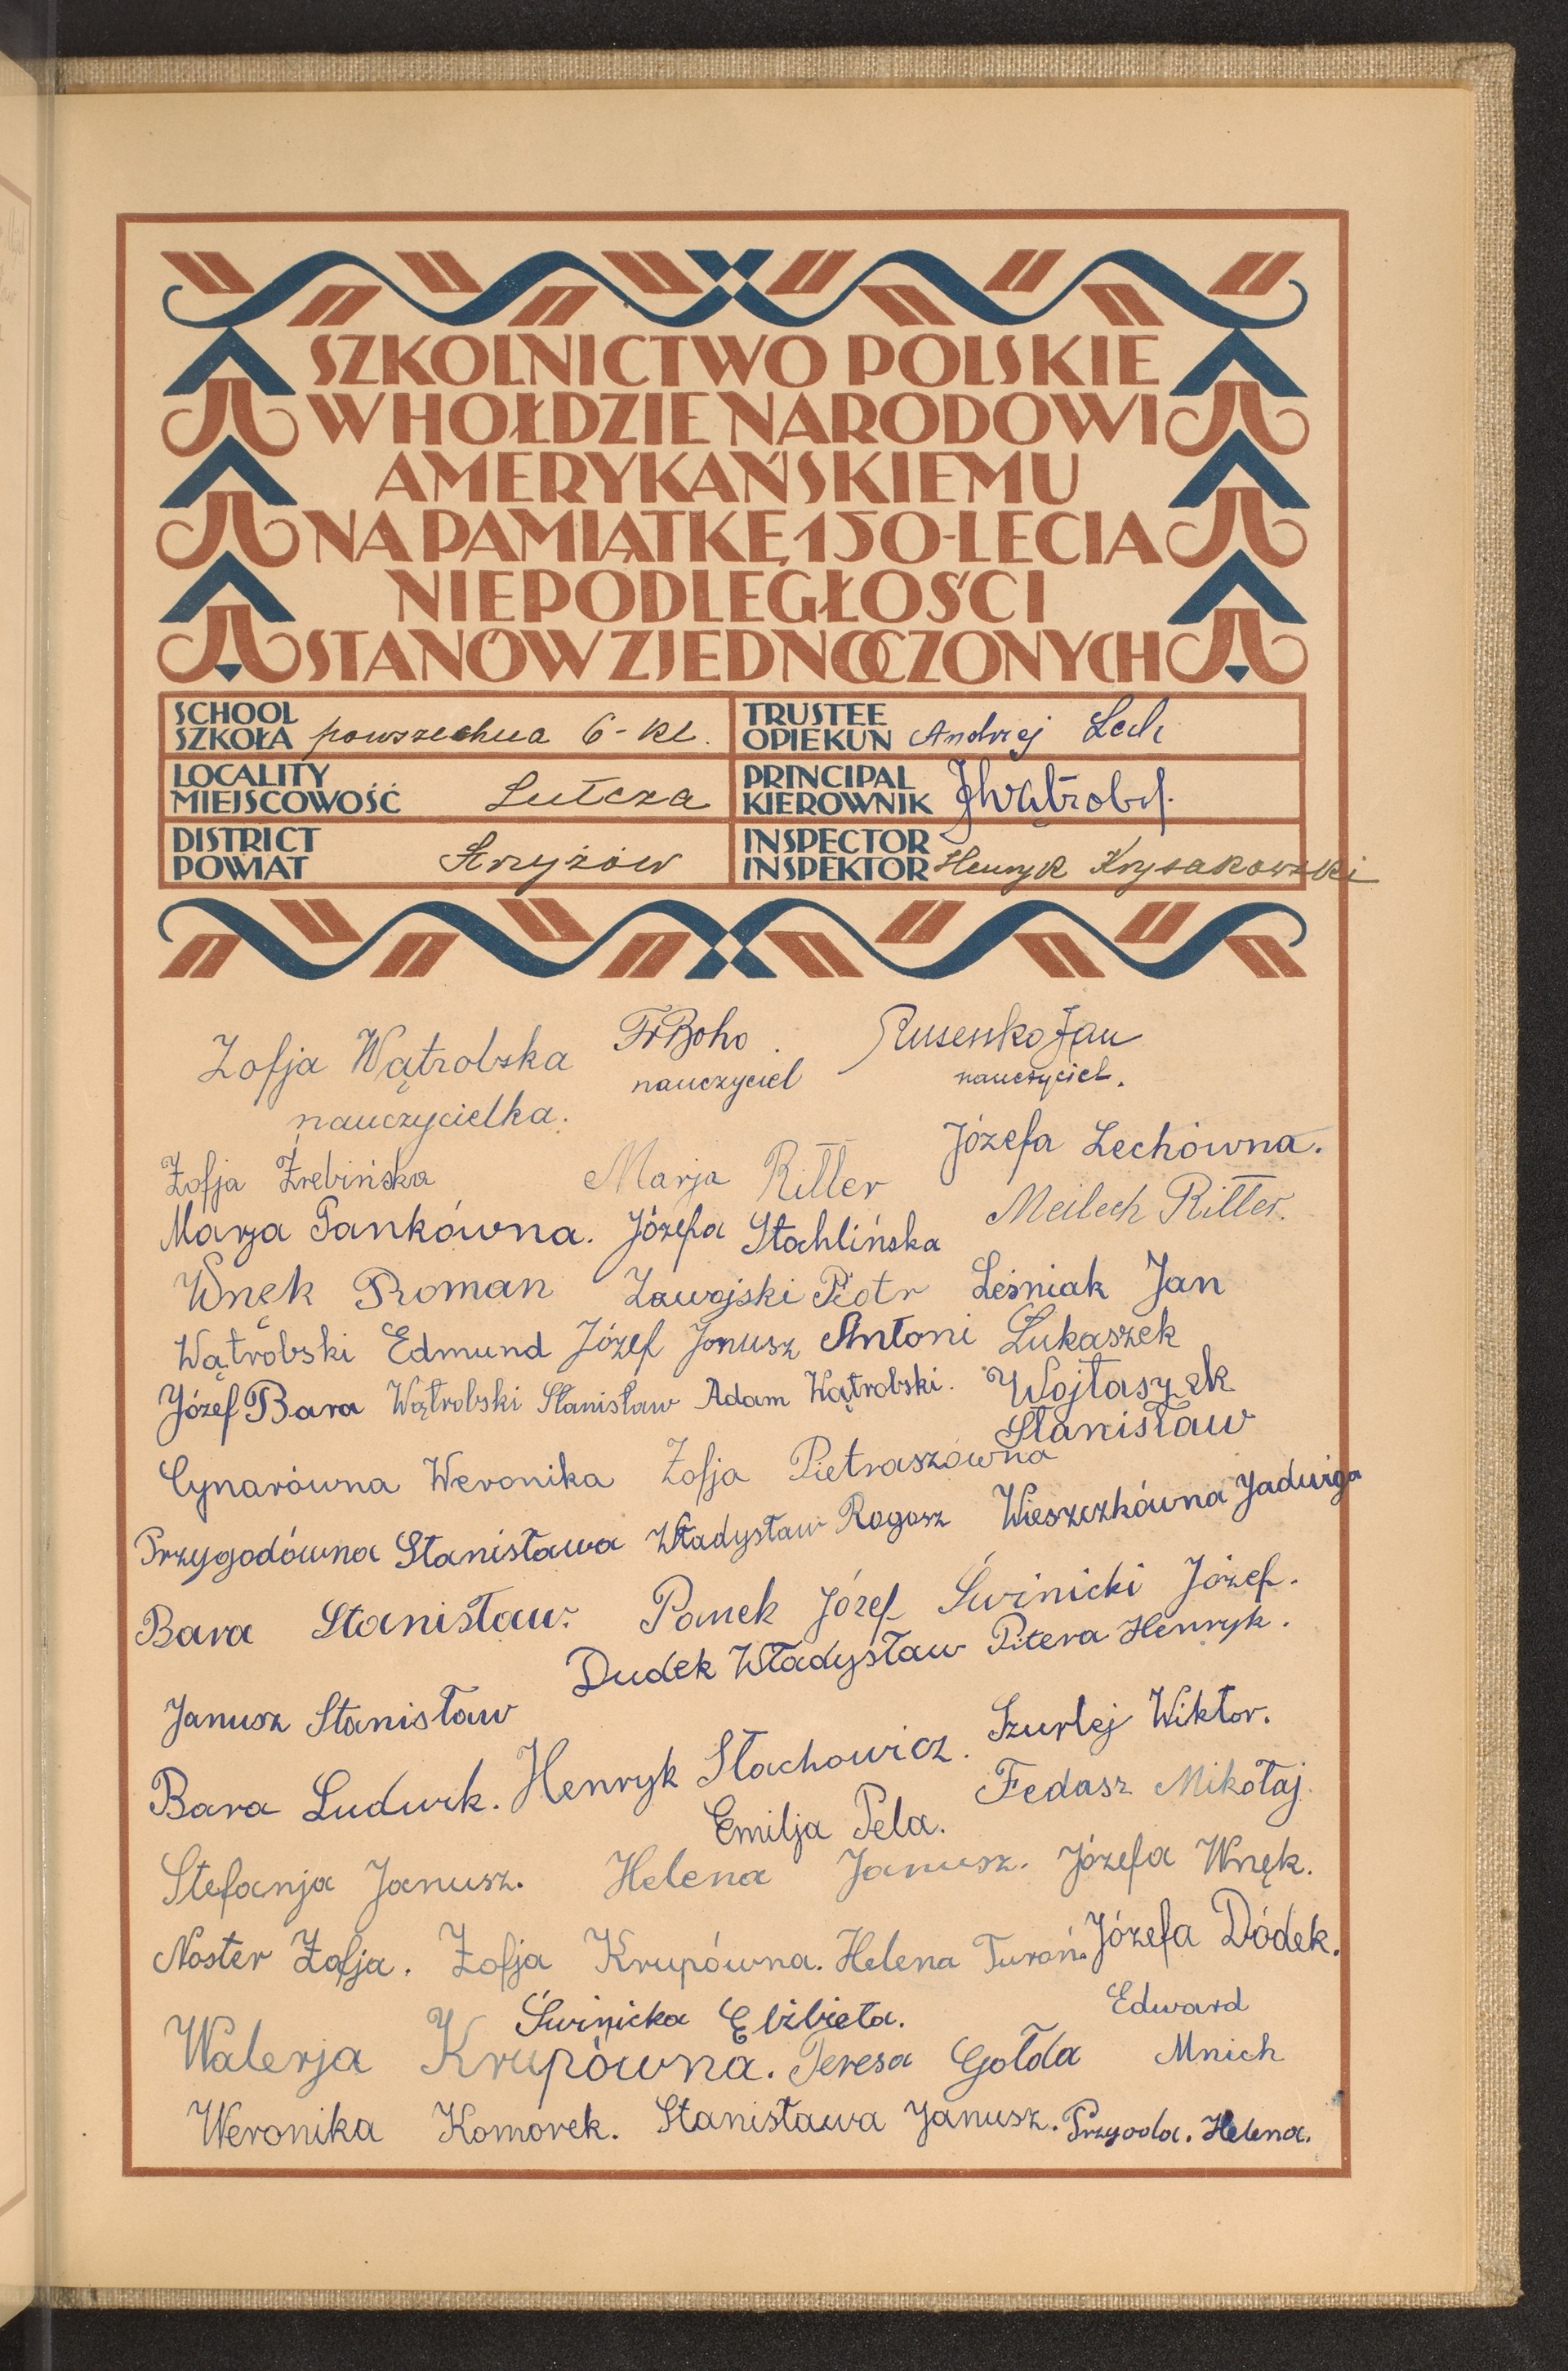 SZKOLNICTWO POLSKIE
W HOŁDZIE NARODOWI
AMERYKAŃSKIEMU
NA PAMIĄTKĘ 150-LECIA
NIEPODLEGŁOŚCI
STANÓW ZJEDNOCZONYCH
SCHOOL
SZKOŁA powszechna 6-kl.
TRUSTEE
OPIEKUN Andrzej Lech
LOCALITY
MIEJSCOWOŚĆ Lutcza
PRINCIPAL
KIEROWNIK
DISTRICT
POWIAT Strzyżów
INSPECTOR
INSPEKTOR Henryk Krysakowski
Zofja Wątrobska Fr Boho Rusenko Jan
nauczycielka. nauczyciel nauczyciel.
Józefa Lechówna.
Zofja Źrebińska Marja Ritter Meilech Ritter.
Marja Pankówna. Józefa Stachlińska
Wnęk Roman Zawojski Piotr Leśniak Jan
Wątrobski Edmund Józef Janusz Antoni Łukaszek
Józef Bara Wątrobski Stanisław Adam Wątrobski. Wojtaszek
Stanisław
Cynarówna Weronika Zofja Pietraszówna
Przygodówna Stanisława Władysław Rogosz Wieszczkówna Jadwiga
Bara Stanisław. Panek Józef Świnicki Józef.
Janusz Stanisław Dudek Władysław Pitera Henryk.
Bara Ludwik. Henryk Stachowicz. Szurlej Wiktor.
Emilja Pela. Fedasz Mikołaj.
Stefanja Janusz. Helena Janusz. Józefa Wnęk.
Noster Zofja. Zofja Krupówna. Helena Turoń. Józefa Dódek.
Świnicka Elżbieta. Edward
Walerja Krupówna. Teresa Gołda Mnich
Weronika Komorek. Stanisława Janusz. Przygoda. Helena.